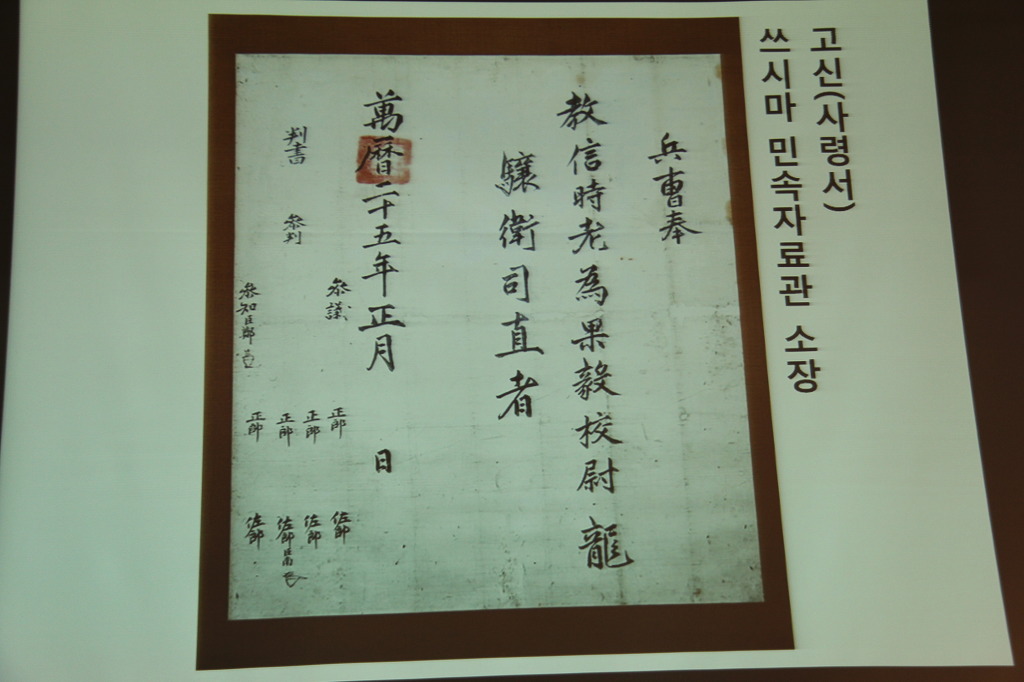 고신(사령서)
쓰시마 민속자료관 소장
兵曹奉
教信時老為果毅校尉龍
驤衛司直者
萬曆二十五年正月 日
參議 正郎 佐郎
正郎 佐郎
判書 參判 正郎 佐郎
參知臣鄭 正郎 佐郎